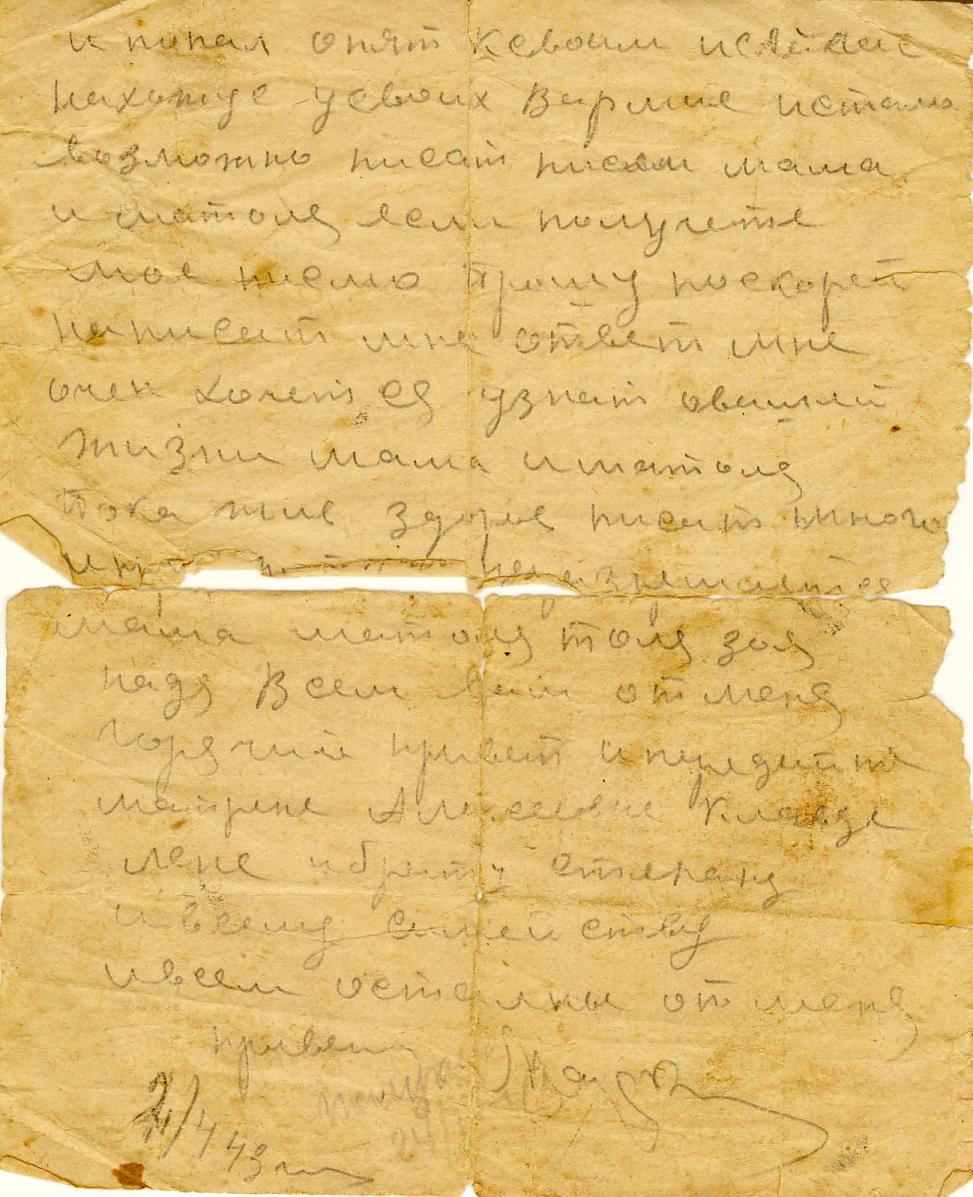 и попал опят ксвоим исейчас
нахожус усвоих Вармие истало
возможно писат писма мама
и матоля если получете
мое писмо прошу поскорей
написат мне ответ мне
очен хочетса узнат овашей
жизни мама иматоля
Пока жив здоров писат много
неразрешается
мама матоля толя зоя
надя Всем вам отменя
горячий привет ипередайте
матрене Алексеевне Клавде
лене ибрату степану
ивсему семейству
ивсем осталным от меня
привет
4 43